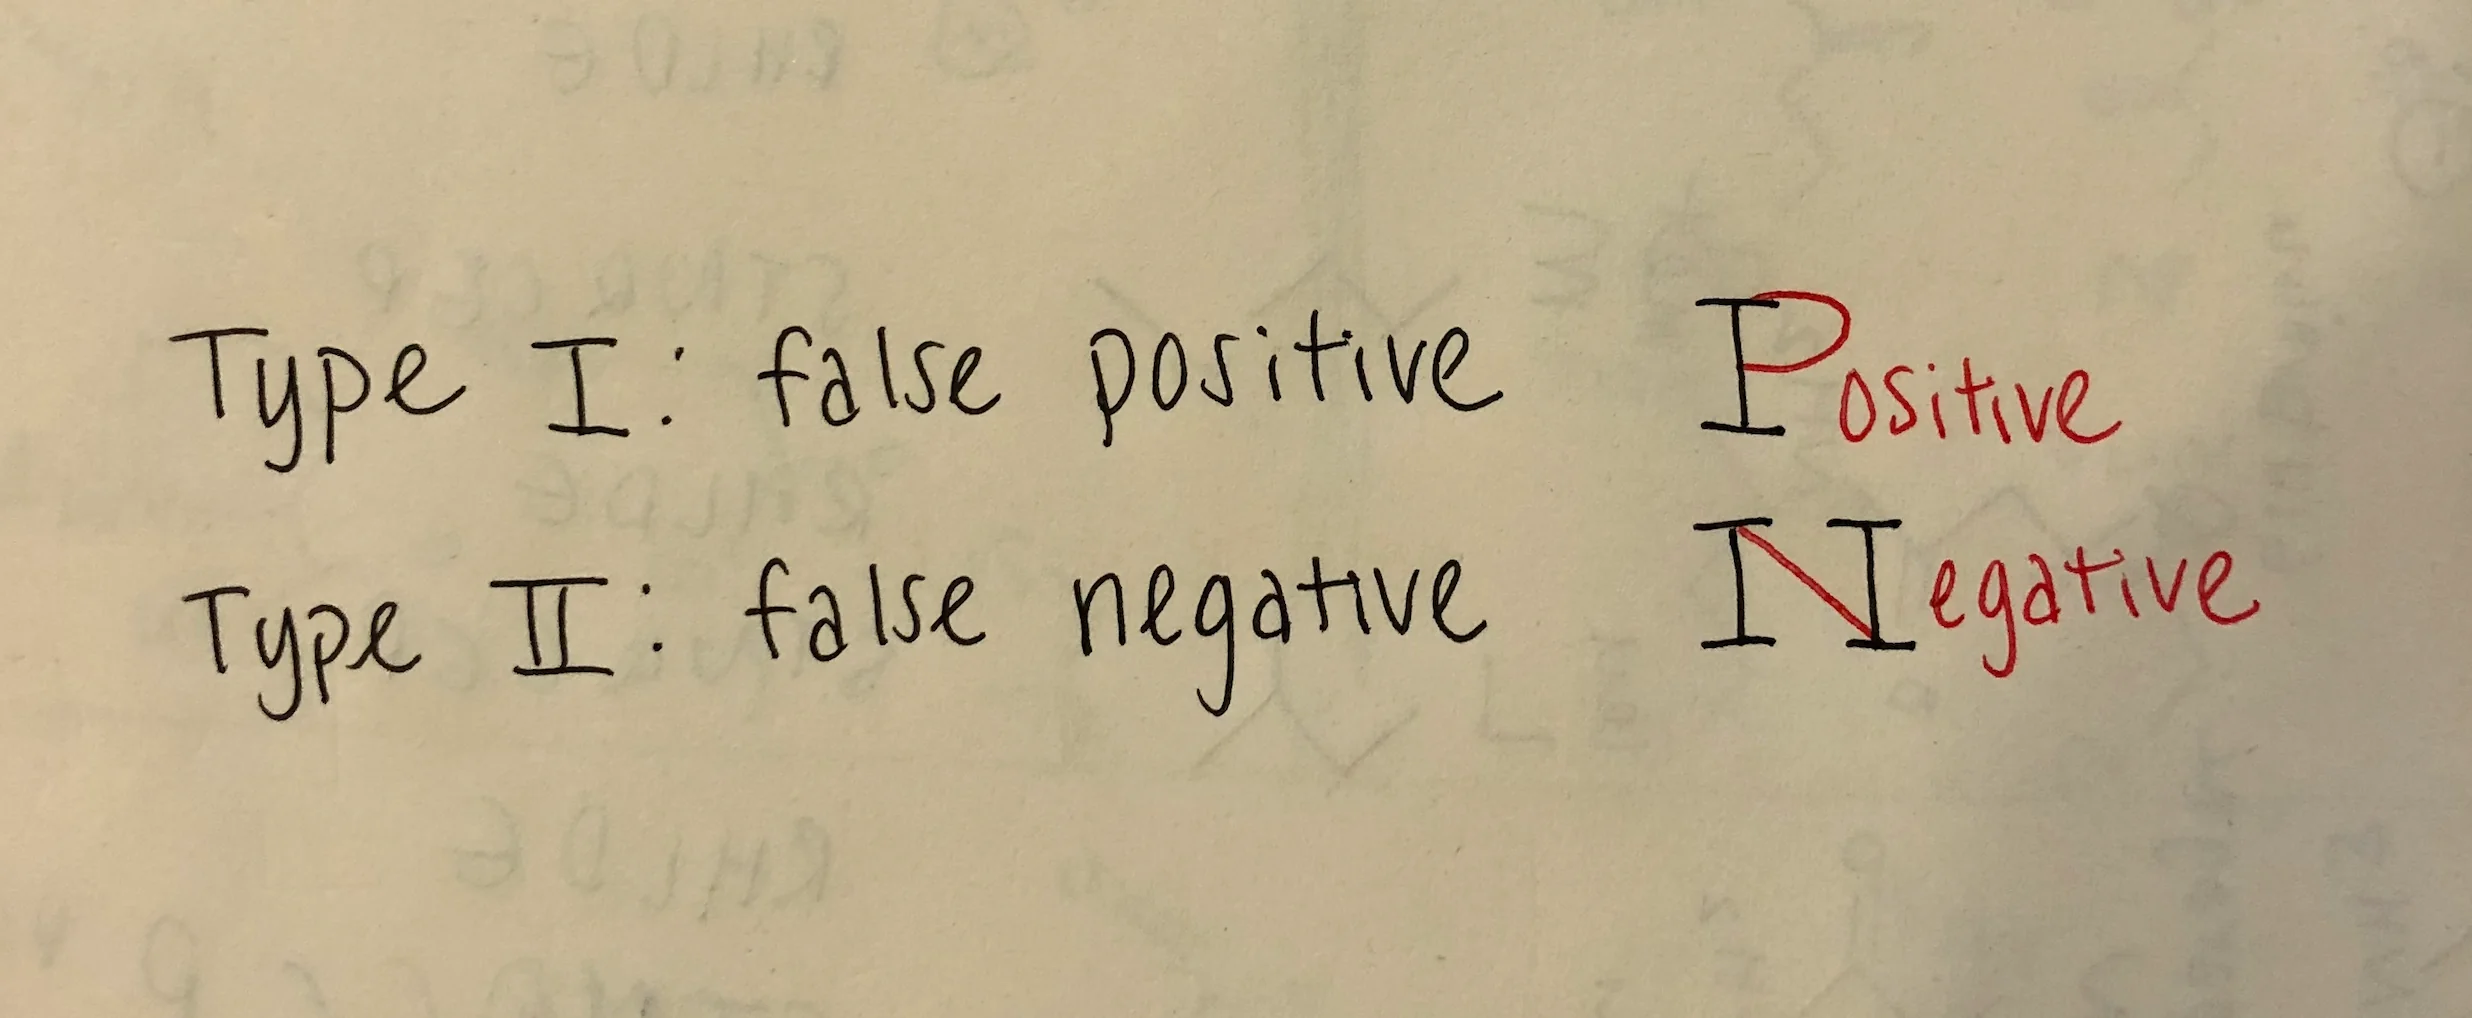 Type I: false positive Positive
Type II: false negative Negative